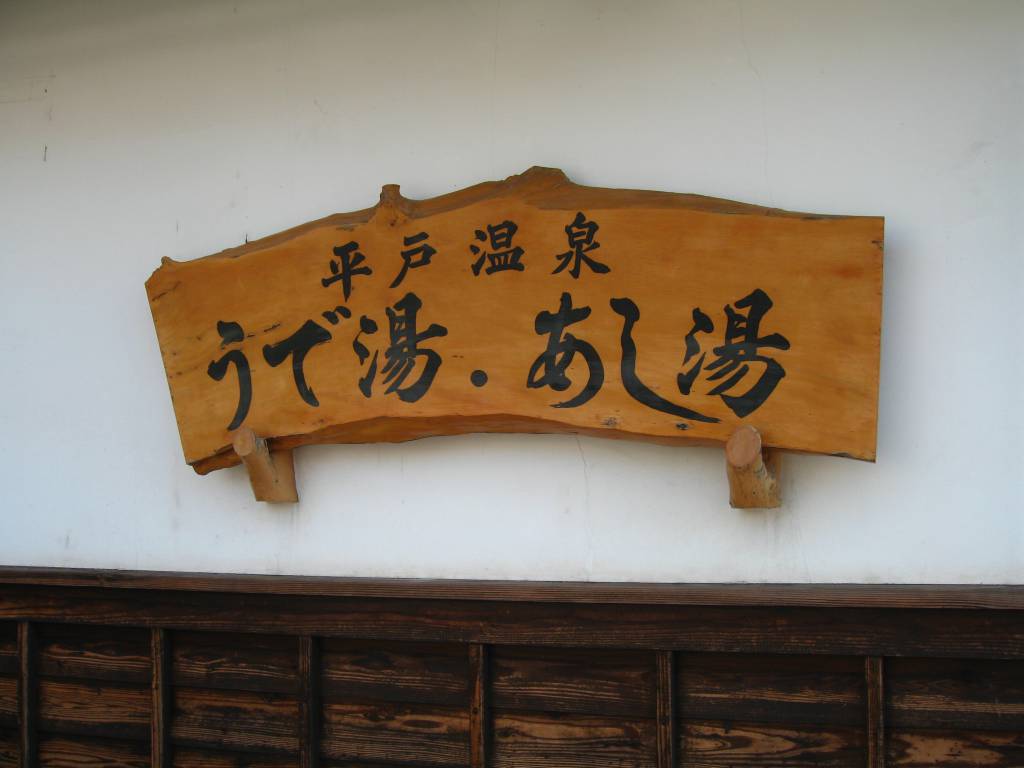 平戸温泉
うで湯・あし湯